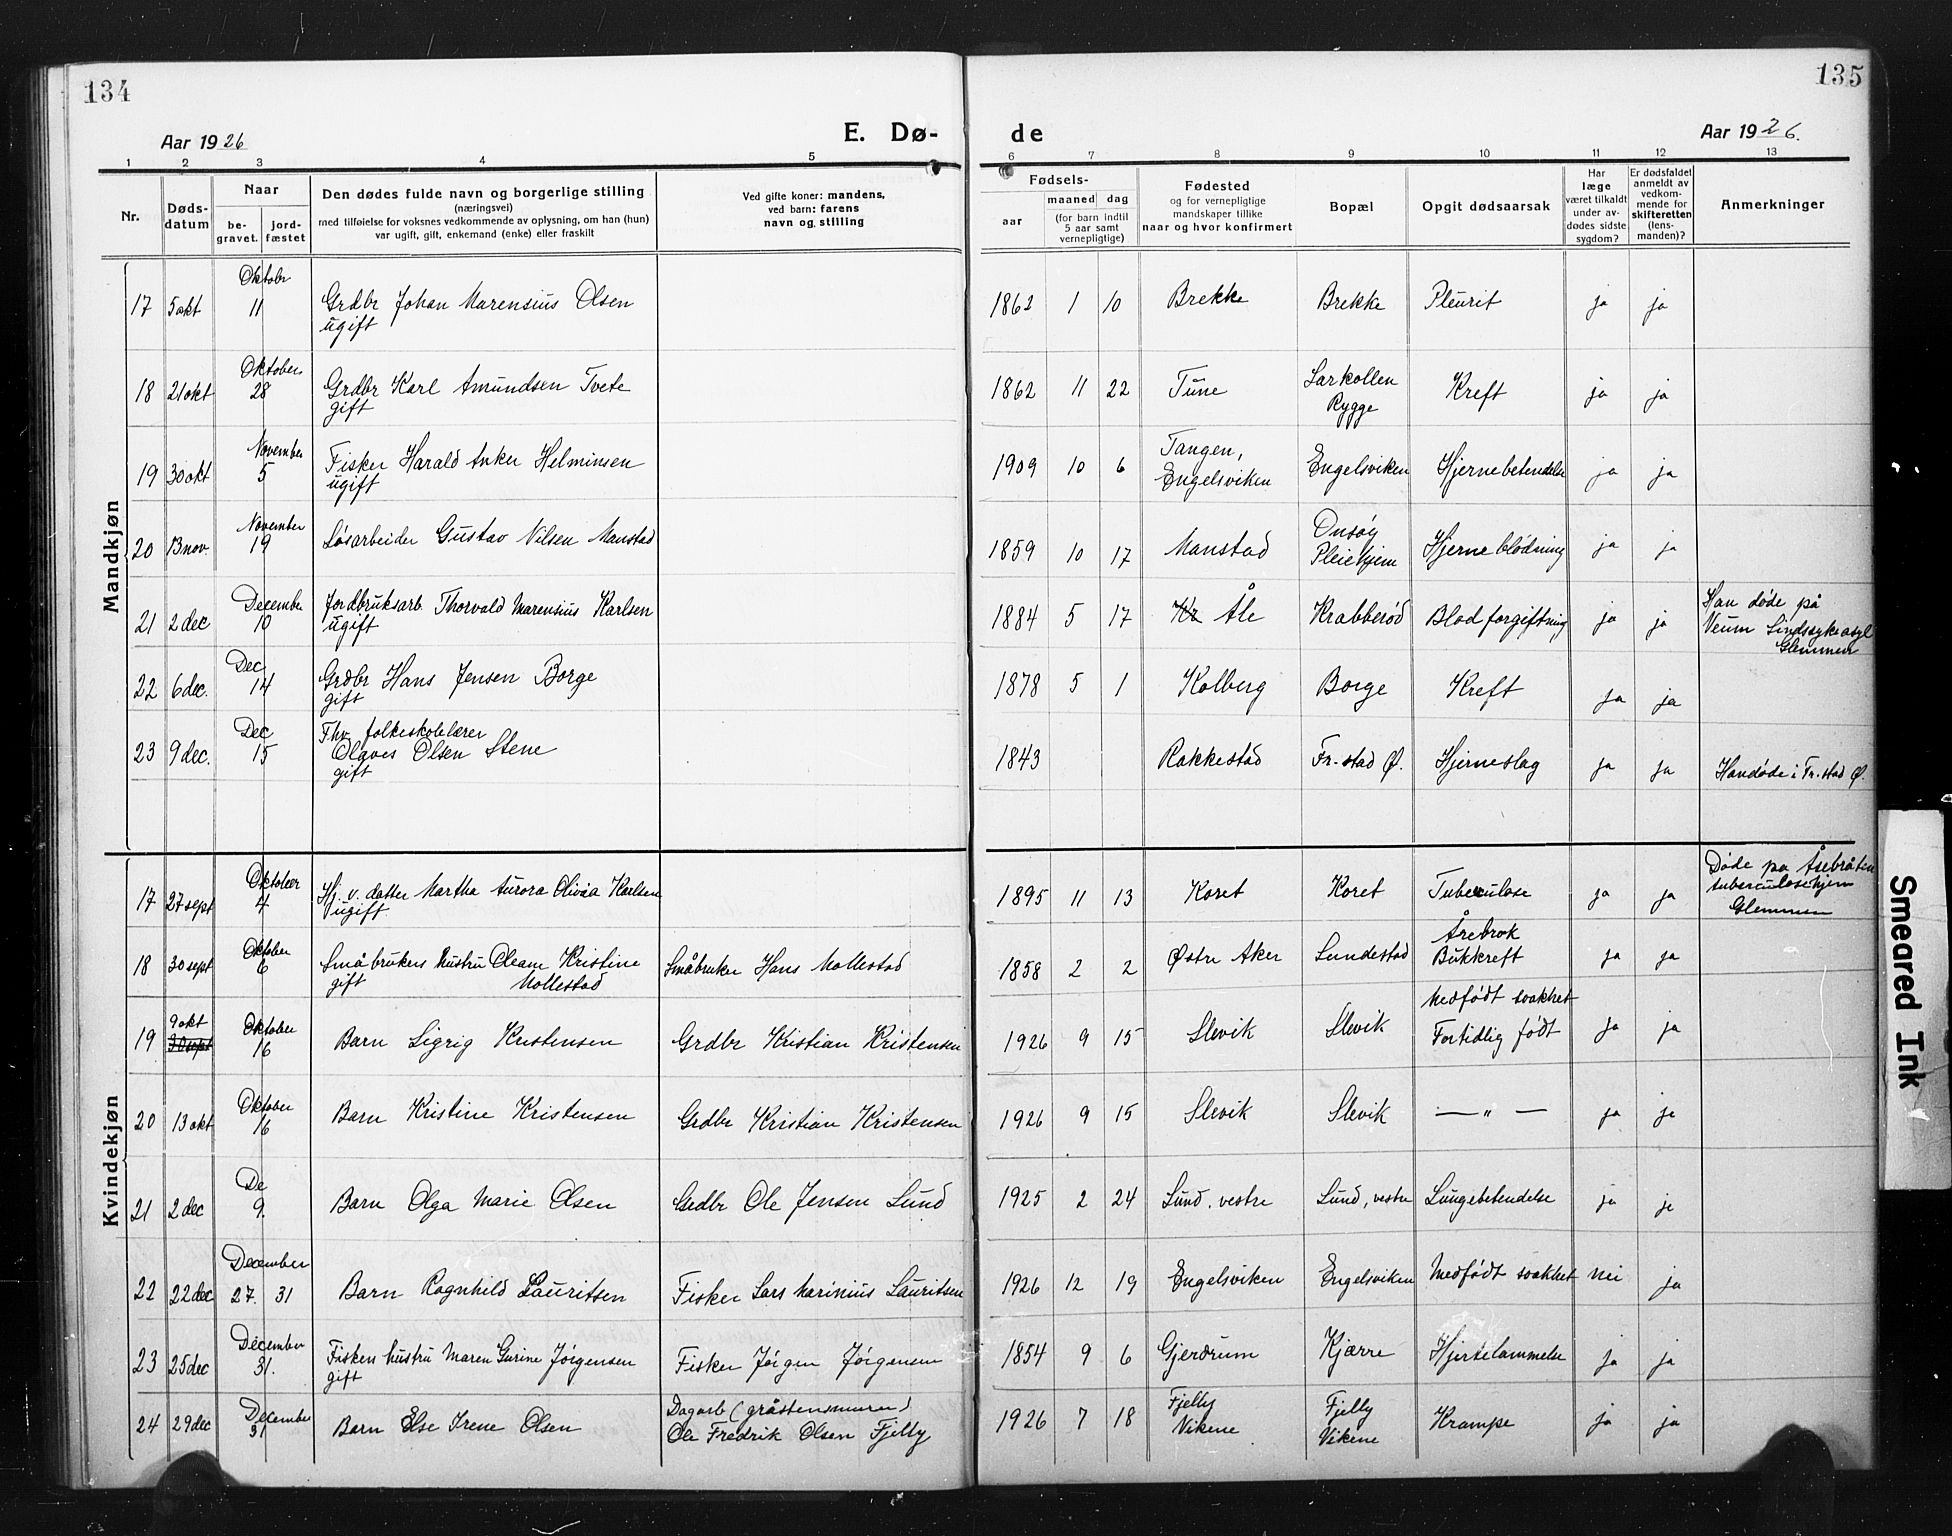 134
135
Aar 1926
E. Dø-
de
Aar 1926.
1 2 3 4 5 6 7 8 9 10 11 12 13
Nr.
Døds-
datum
Naar
be-
gravet.
jord-
fæstet
Den dødes fulde navn og borgerlige stilling
(næringsvei)
med tilføielse for voksnes vedkommende av oplysning, om han (hun)
var ugift, gift, enkemand (enke) eller fraskilt
Ved gifte koner: mandens,
ved barn: farens
navn og stilling
Fødsels-
aar
maaned dag
(for barn indtil
5 aar samt
vernepligtige)
Fødested
og for vernepligtige
mandskaper tillike
naar og hvor konfirmert
Bopæl
Opgit dødsaarsak
Har
læge
været tilkaldt
under av-
dødes sidste
sygdom?
Er dødsfaldet
anmeldt av
vedkom-
mende for
skifteretten
(lens-
manden)?
Anmerkninger
Mandkjøn
Oktobr
17 5 okt 11 Grdbr Johan Marensius Olsen 1862 1 10 Brekke Brekke Pleurit ja ja
ugift
Oktober
18 21 okt 28 Grdbr Karl Amundsen Tvete 1862 11 22 Tune Larkollen Kreft ja ja
gift Rygge
November Tangen,
19 30 okt 5 Fisker Harald Anker Helminsen 1909 10 6 Engelsviken Engelsviken Hjernebetendelse ja ja
ugift
November Onsøy
20 13 nov. 19 Løsarbeider Gustav Nilsen Manstad 1859 10 17 Manstad Pleiehjem Hjerneblødning ja ja
December Han døde på
21 2 dec 10 Jordbruksarb. Thorvald Marensius Karlsen 1884 5 17 Kr Åle Krabberød Blodforgiftning ja ja Veum Sindssykeasyl
ugift Glemmen
Dec
22 6 dec. 14 Grdbr Hans Jensen Borge 1878 5 1 Kolberg Borge Kreft ja ja
gift
Dec Fhv. folkeskolelærer
23 9 dec. 15 Olaves Olsen Stene 1843 Rakkestad Fr-stad Ø. Hjerneslag ja ja Han døde i Fr.stad Ø.
gift
Kvindekjøn
Oktober Døde pa Åsebråten
17 27 sept 4 Hj. v. datter Martha Aurora Olivia Karlsen 1895 11 13 Koret Koret Tuberculose ja ja tuberculosehjem
ugift Glemmen
Oktober Årebrok
18 30 sept 6 Småbrukers hustru Oleane Kristine Småbruker Hans Mollestad 1858 2 2 Østre Aker Lundestad Bukkreft ja ja
gift Mollestad
9 okt Oktober Medfødt svakhet
19 30 sept 16 Barn Sigrig Kristensen Grdbr Kristian Kristensen 1926 9 15 Slevik Slevik Fortidlig født ja ja
Oktober
20 13 okt 16 Barn Kristine Kristensen Grdbr Kristian Kristensen 1926 9 15 Slevik Slevik — " — ja ja
De
21 2 dec 9. Barn Olga Marie Olsen Grdbr Ole Jensen Lund 1925 2 24 Lund, vestre Lund, vestre Lungebetendelse ja ja
December
22 22 dec 27. 31 Barn Ragnhild Lauritsen Fisker Lars Marinius Lauritsen 1926 12 19 Engelsviken Engelsviken Medfødt svakhet nei ja
December
23 25 dec 31. Fiskers hustru Maren Gurine Jörgensen Fisker Jörgen Jörgensen 1854 9 6 Gjerdrum Kjærre Hjertelammelse ja ja
gift
December Dagarb (gråstensmurer) Fjelly Fjelly
24 29 dec 31 Barn Else Irene Olsen Ole Fredrik Olsen Fjelly 1926 7 18 Vikene Vikene Krampe ja ja
Smeared Ink